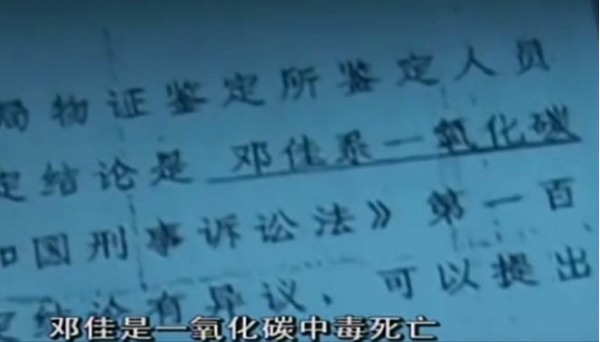 局物证鉴定所鉴定人员
定结论是 邓佳系一氧化碳
和国刑事诉讼法》第一百
定结论有异议，可以提出
邓佳是一氧化碳中毒死亡